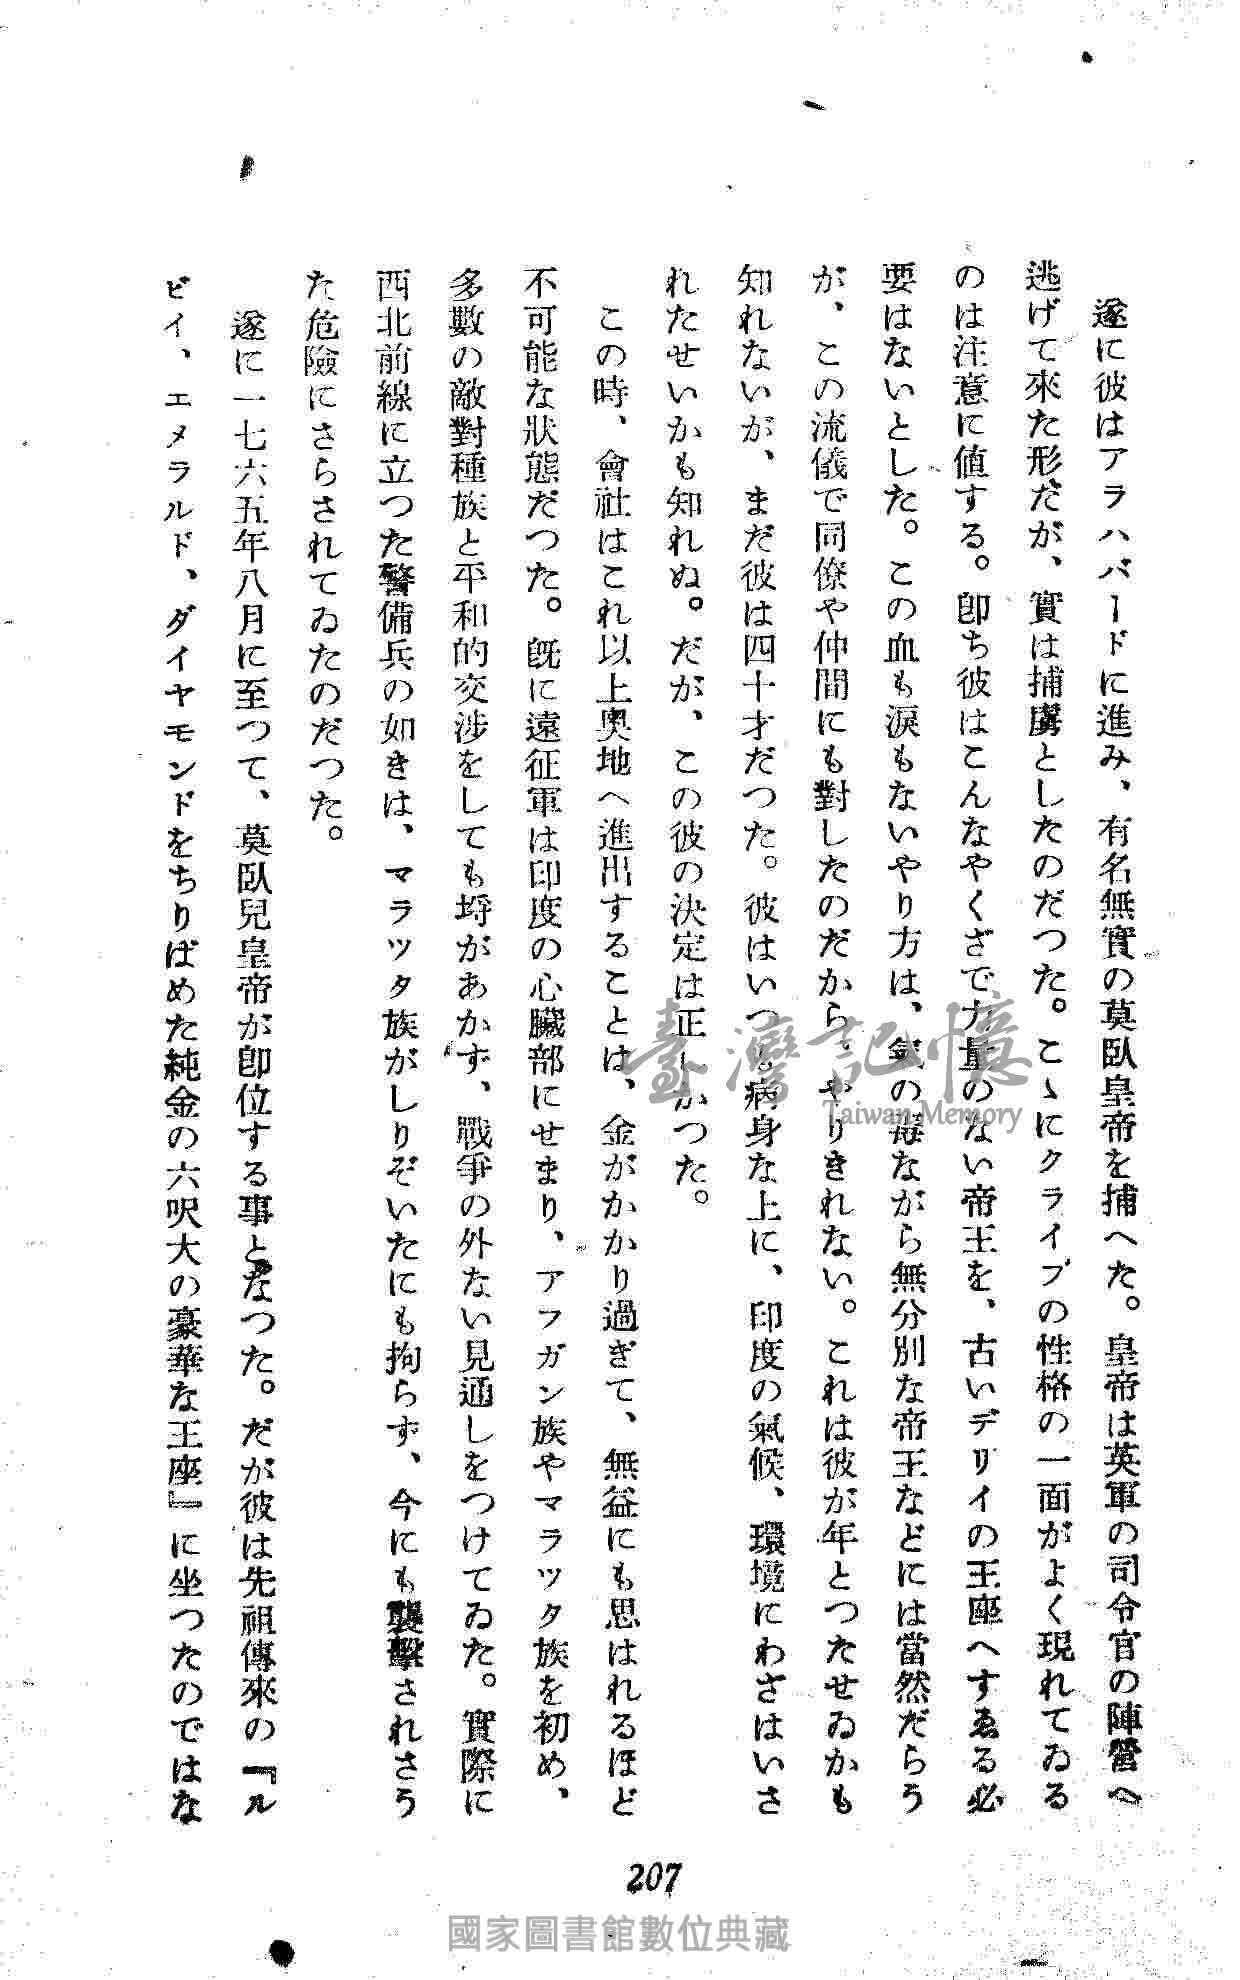 遂に彼はアラハバードに進み、有名無實の莫臥皇帝を捕へた。皇帝は英軍の司令官の陣營へ
逃げて來た形だが、實は捕虜としたのだつた。こゝにクライブの性格の一面がよく現れてゐる
のは注意に値する。卽ち彼はこんなやくざで力量のない帝王を、古いデリイの王座へすゑる必
要はないとした。この血も淚もないやり方は、氣の毒ながら無分別な帝王などには當然だらう
が、この流儀で同僚や仲間にも對したのだから、やりきれない。これは彼が年とつたせゐかも
知れないが、まだ彼は四十才だつた。彼はいつも病身な上に、印度の氣候、環境にわざはいさ
れたせいかも知れぬ。だが、この彼の決定は正しかつた。
この時、會社はこれ以上奧地へ進出することは、金がかかり過ぎて、無益にも思はれるほど
不可能な狀態だつた。旣に遠征軍は印度の心臟部にせまり、アフガン族やマラツタ族を初め、
多數の敵對種族と平和的交涉をしても埒があかず、戰爭の外ない見通しをつけてゐた。實際に
西北前線に立つた警備兵の如きは、マラツタ族がしりぞいたにも拘らず、今にも襲擊されさう
た危險にさらされてゐたのだつた。
遂に一七六五年八月に至つて、莫臥兒皇帝が卽位する事となつた。だが彼は先祖傳來の『ル
ビイ、エメラルド、ダイヤモンドをちりばめた純金の六呎大の豪華な王座』に坐つたのではな
207
臺灣記憶
Taiwan Memory
國家圖書館數位典藏